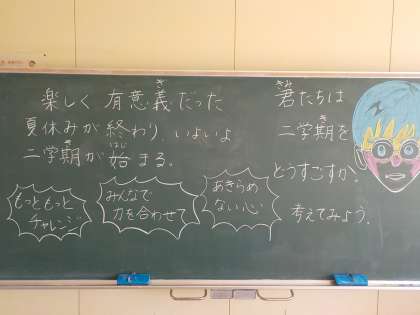 楽しく 有意義だった
夏休みが終わり、いよいよ
二学期が始まる。
もっともっと
チャレンジ
みんなで
力を合わせて
あきらめ
ない心
君たちは
二学期を
どうすごすか。
考えてみよう。